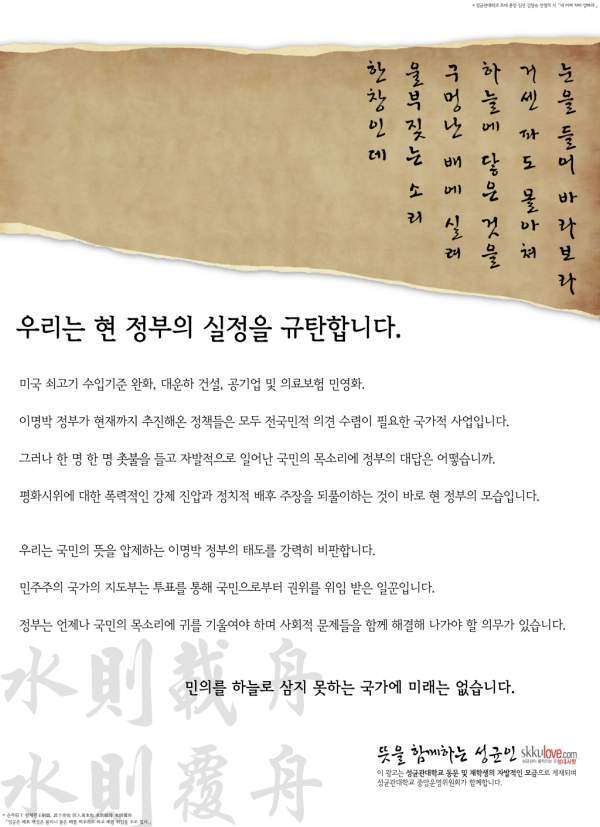 눈을 들어 바라보라
거센 파도 몰아쳐
하늘에 닿은 것을
구멍난 배에 실려
울부짖는 소리
한창인데
우리는 현 정부의 실정을 규탄합니다.
미국 쇠고기 수입기준 완화, 대운하 건설, 공기업 및 의료보험 민영화.
이명박 정부가 현재까지 추진해온 정책들은 모두 전국민적 의견 수렴이 필요한 국가적 사업입니다.
그러나 한 명 한 명 촛불을 들고 자발적으로 일어난 국민의 목소리에 정부의 대답은 어떻습니까.
평화시위에 대한 폭력적인 강제 진압과 정치적 배후 주장을 되풀이하는 것이 바로 현 정부의 모습입니다.
우리는 국민의 뜻을 압제하는 이명박 정부의 태도를 강력히 비판합니다.
민주주의 국가의 지도부는 투표를 통해 국민으로부터 권위를 위임 받은 일꾼입니다.
정부는 언제나 국민의 목소리에 귀를 기울여야 하며 사회적 문제들을 함께 해결해 나가야 할 의무가 있습니다.
水則載舟
水則覆舟
민의를 하늘로 삼지 못하는 국가에 미래는 없습니다.
뜻을 함께하는 성균인 skkulove.com
이 광고는 성균관대학교 동문 및 재학생의 자발적인 모금으로 게재되며
성균관대학교 중앙운영위원회가 함께합니다.